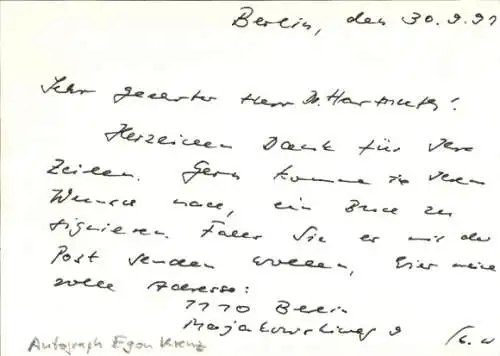 Berlin, den 30.9.91
Sehr geehrter Herr Dr.
Herzlichen Dank für Ihre
Zeilen. Gern komme ich Ihrem
Wunsch nach, ein Buch zu
signieren. Falls Sie es mir der
Post senden wollen, hier meine
volle Adresse:
1110 Berlin
Majakowskiweg 9
Autograph Egon Krenz